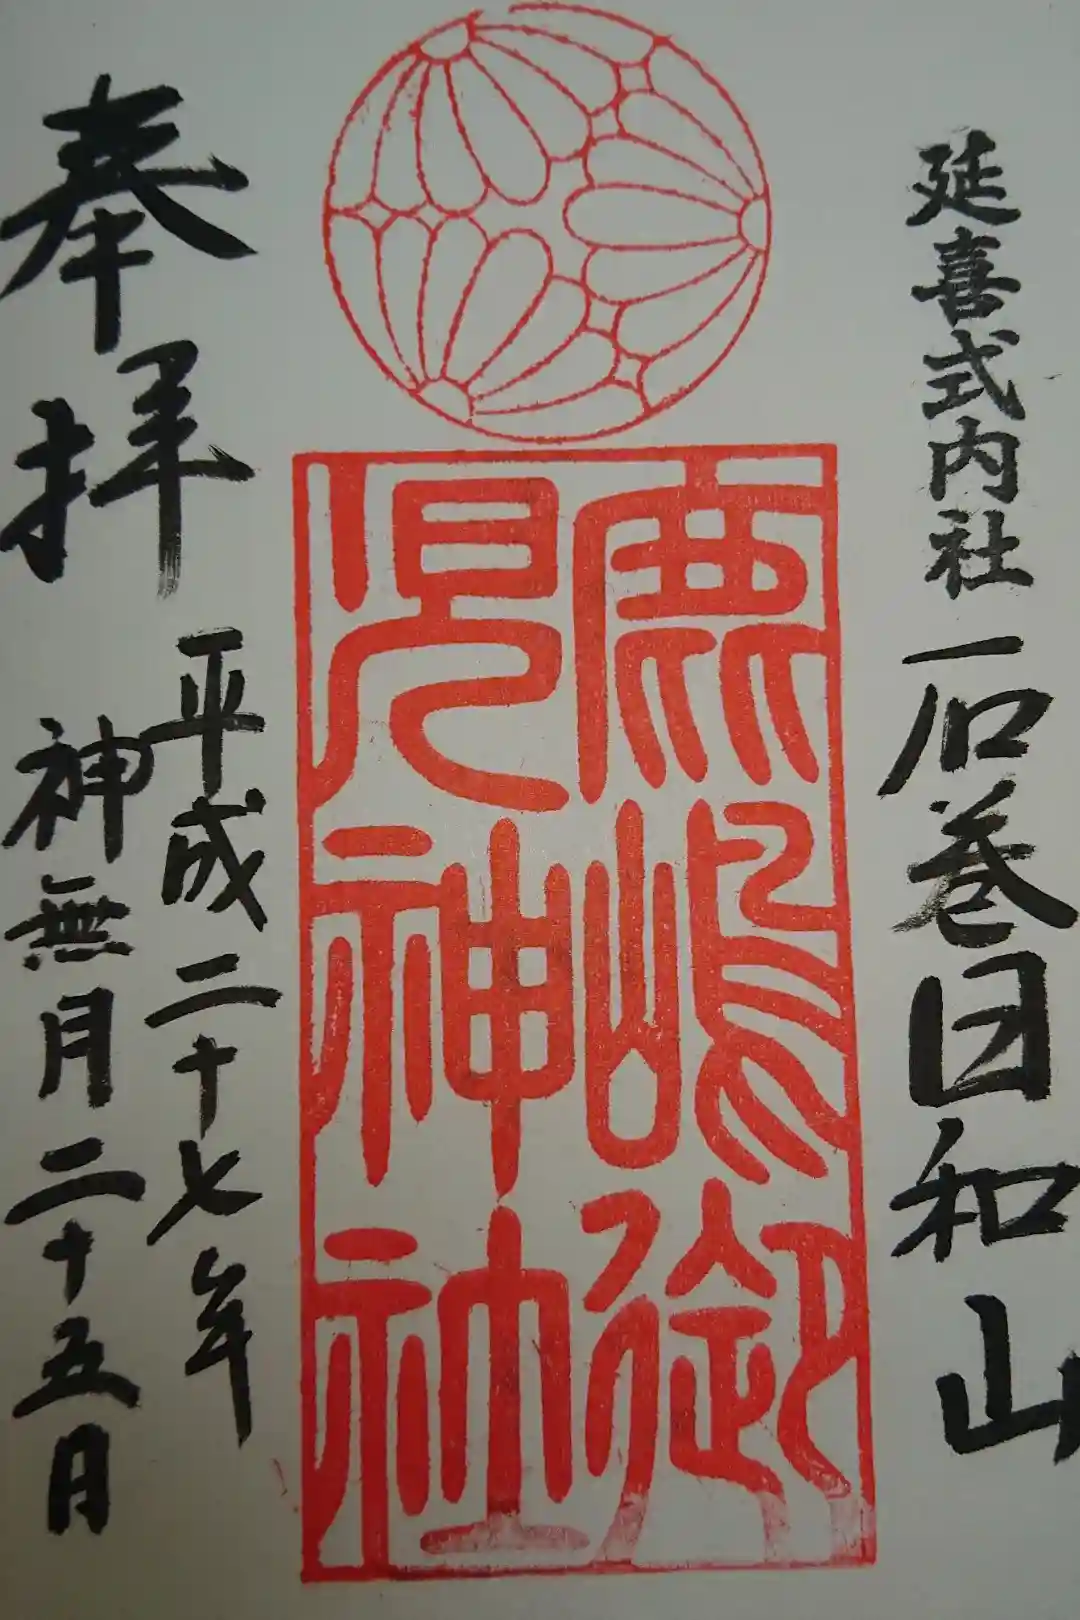 延喜式内社
石巻日和山
鹿嶋御
児神社
奉拝
平成二十七年
神無月二十五日